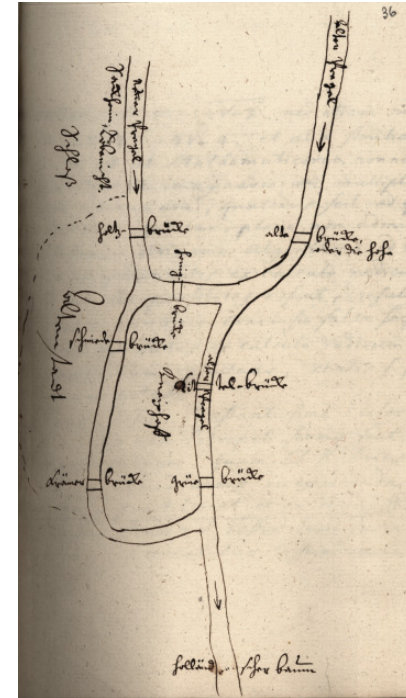 36
alter Pregel
neuer Pregel
Schloß
holtz-brücke
honig brücke
alte brücke,
oder die hohe
schmiede brücke
Kneiphoff
alter Pregel
Krämer brücke
grüne brücke
holländischer baum